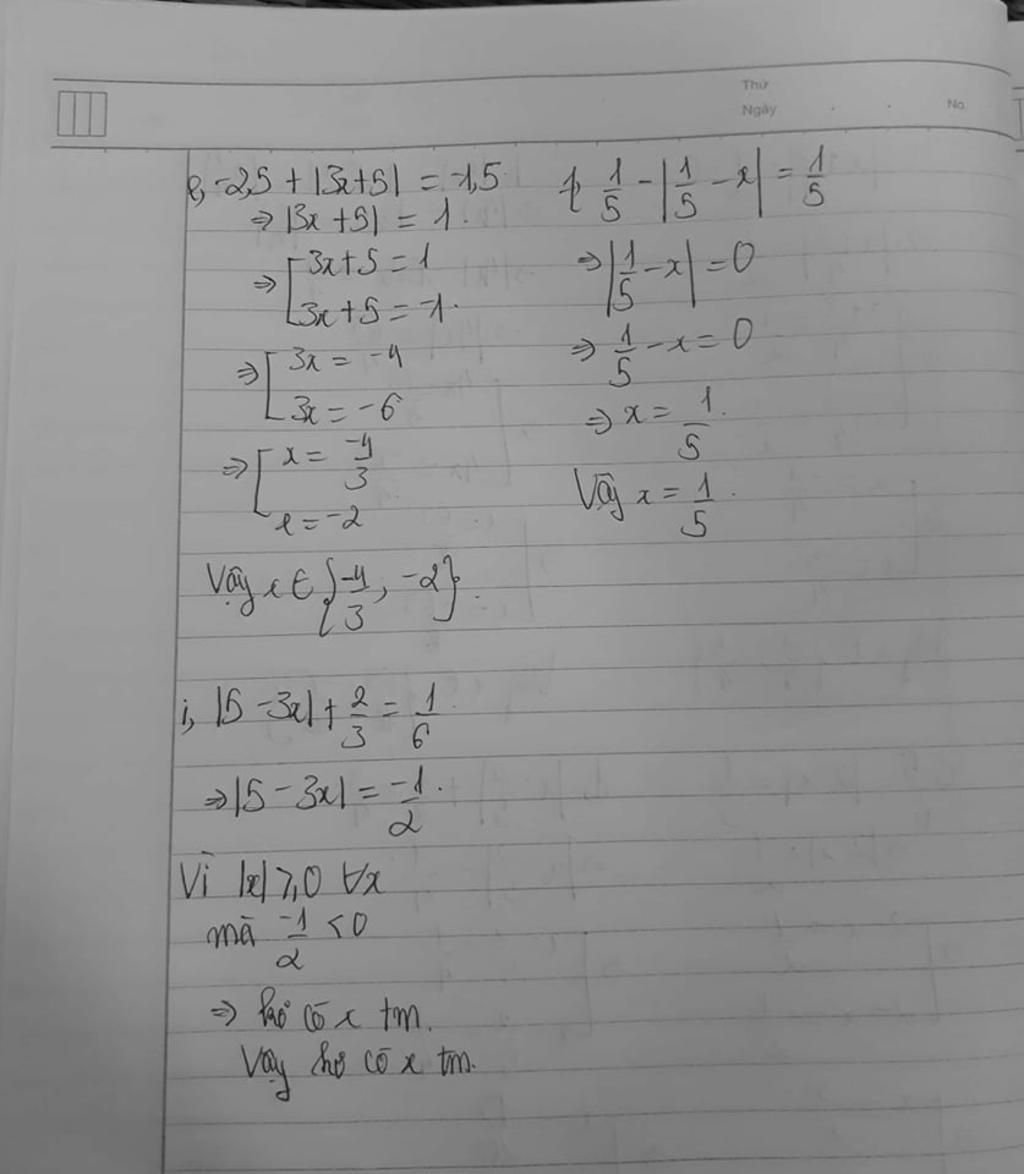 Thứ
Ngày . . No
e, -2,5 + |3x+5| = -1,5
⇒ |3x+5| = 1.
⇒ [ 3x+5 = 1
3x+5 = -1.
⇒ [ 3x = -4
3x = -6
⇒ [ x = -4/3
x = -2
Vậy x ∈ {-4/3, -2}.
f, 1/5 - |1/5 - x| = 1/5
⇒ |1/5 - x| = 0
⇒ 1/5 - x = 0
⇒ x = 1/5.
Vậy x = 1/5.
i, |5 - 3x| + 2/3 = 1/6
⇒ |5 - 3x| = -1/2.
Vì |x| ≥ 0 ∀x
mà -1/2 < 0
⇒ có x tm.
Vậy có x tm.